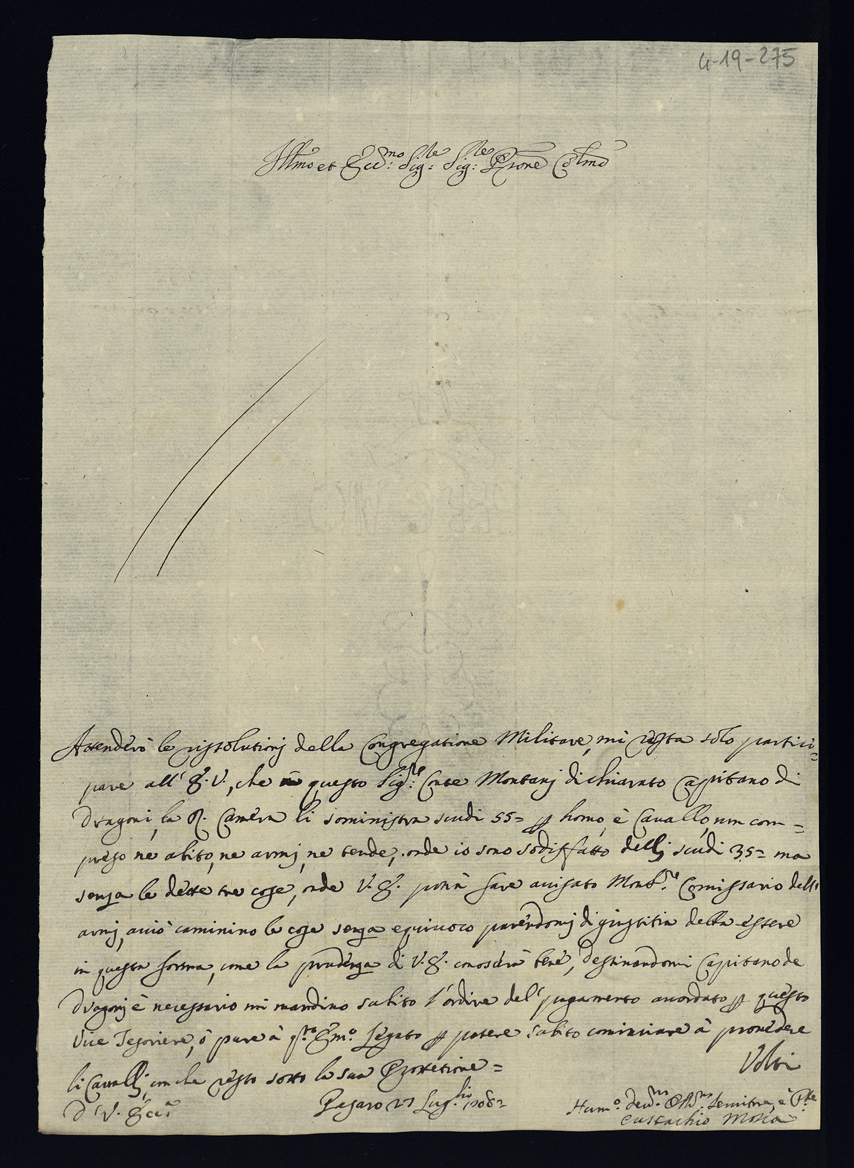 4-19-275
Ill.mo et Ecc.mo Sig.re Sig.re P.rone Col.mo
Attenderò le rissolutionj della Congregatione Militare, mi resta solo partici=
pare all' E.V., che questo Sig.re Conte Montanj dichiarato Capitano di
Dragoni, la R. Camera li soministra scudi 55= p homo, è Cavallo, non com=
preso nè abito, ne armj, ne tende, onde io sono sodisfatto dellj scudi 35= ma
senza le dette tre cose, onde V.E. potrà fare avisato Mons.re Comissario dell'
armj, acciò caminino le cose senza equivoco parendomj di giustitia debba essere
in questa forma, come la prudenza di V.E. conoscerà bene, destinandomi Capitano de
Dragonj è necessario mi mandino subito l'ordine del pagamento acordato p questo
Vice Tesoriere, ò pure à q.sto Em.o Legato p potere subito cominciare à provedere
li Cavallj, con che resto sotto la sua Protetione=
Volti
D' V. Ecc.a
Pesaro 27 Lug.lio 1708=
Hum.o Dev.mo Obb.mo Servitore, è
Eustachio Mosca